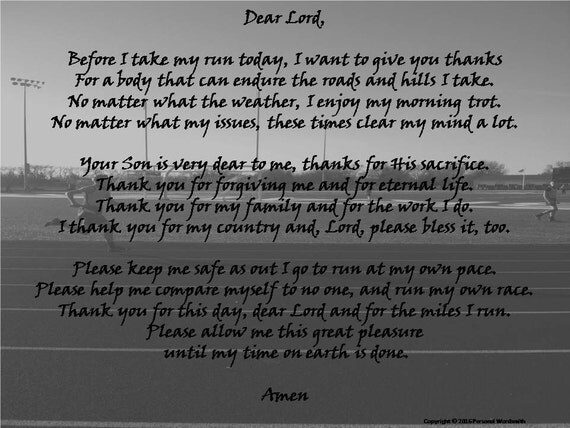 Dear Lord,
Before I take my run today, I want to give you thanks
For a body that can endure the roads and hills I take.
No matter what the weather, I enjoy my morning trot.
No matter what my issues, these times clear my mind a lot.
Your Son is very dear to me, thanks for His sacrifice.
Thank you for forgiving me and for eternal life.
Thank you for my family and for the work I do.
I thank you for my country and, Lord, please bless it, too.
Please keep me safe as out I go to run at my own pace.
Please help me compare myself to no one, and run my own race.
Thank you for this day, dear Lord and for the miles I run.
Please allow me this great pleasure
until my time on earth is done.
Amen
Copyright © 2016 Personal Wordsmith